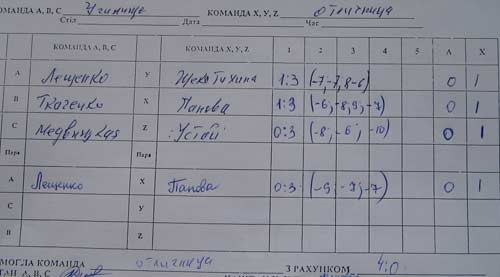 КОМАНДА A, B, C Училище КОМАНДА X, Y, Z отличница
Стіл Дата Час
КОМАНДА A, B, C КОМАНДА X, Y, Z 1 2 3 4 5 A X
A Лещенко Y 1:3 (-7, -7, 8 -6) 0 1
B Ткаченко X Панова 1:3 (-6, -8, 9, -7) 0 1
C Z 0:3 (-8, -6, -10) 0 1
Пара Пара
A Лещенко X Панова 0:3 (-9, -7, -7) 0 1
C Y
B Z
МОГЛА КОМАНДА отличница З РАХУНКОМ 4:0
ТАН A, B, C